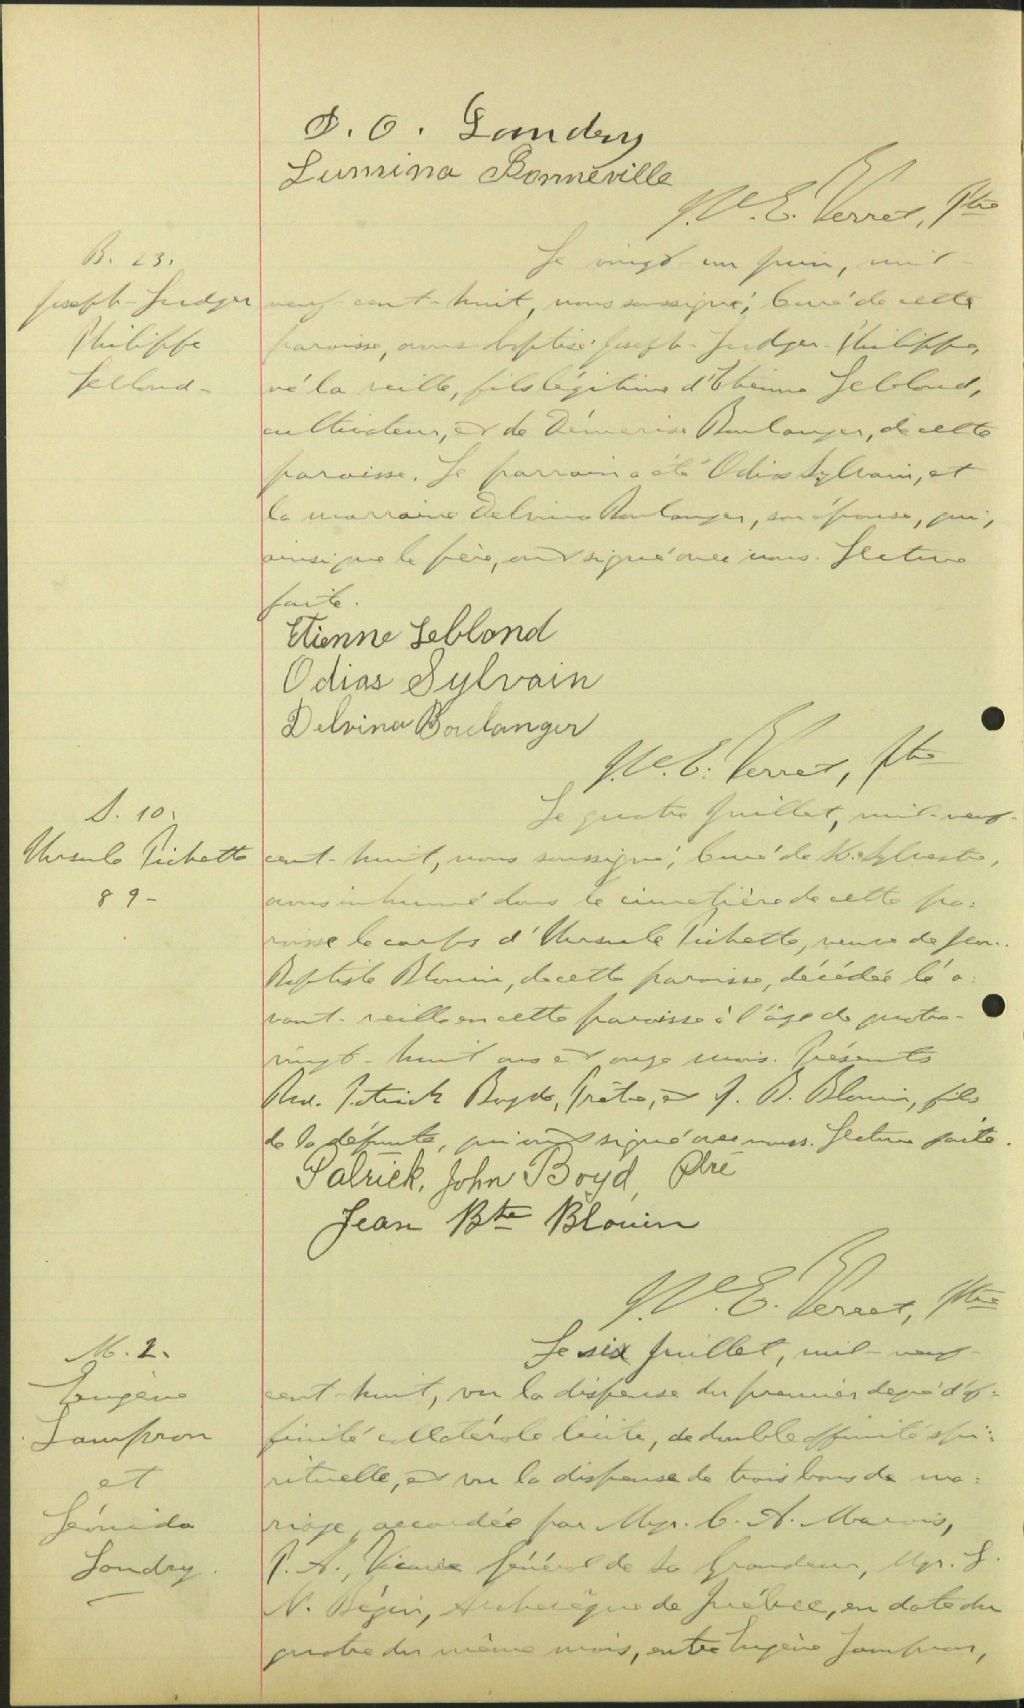 D. O. Landry
Lumina Bonneville
J. N. E. Verret, Ptre
B. 23.
Joseph-Ludger
Philippe
Leblond-
Le vingt-un juin, mil-
neuf-cent-huit, nous soussigné, Curé de cette
paroisse, avons baptisé Joseph-Ludger-Philippe,
né la veille, fils légitime d'Etienne Leblond,
cultivateur, et de Démerise Boulanger, de cette
paroisse. Le parrain a été Odias Sylvain, et
la marraine Delvina Boulanger, son épouse, qui,
ainsi que le père, ont signé avec nous. Lecture
faite.
Etienne Leblond
Odias Sylvain
Delvina Boulanger
J. N. E. Verret, Ptre
S. 10.
Ursule Pichette
89-
Le quatre Juillet, mil-neuf-
cent-huit, nous soussigné, Curé de St. Sylvestre,
avons inhumé dans le cimetière de cette pa:
roisse le corps d'Ursule Pichette, veuve de Jean-
Baptiste Blouin, de cette paroisse, décédée l'a:
vant-veille en cette paroisse à l'âge de quatre-
vingt-huit ans et onze mois. Présents
Rvd. Patrick Boyd, Prêtre, et J. B. Blouin, fils
de la défunte, qui ont signé avec nous. Lecture faite.
Patrick, John Boyd, Ptre
Jean Bte Blouin
J. N. E. Verret, Ptre
M. 2.
Eugène
Lampron
et
Léonida
Landry.
Le six Juillet, mil-neuf-
cent-huit, vu la dispense du premier degré d'af:
finité collatérale licite, de double affinité spi:
rituelle, et vu la dispense de trois bans de ma:
riage, accordée par Mgr. C. A. Marois,
P. A., Vicaire Général de Sa Grandeur, Mgr. L.
N. Bégin, Archevêque de Québec, en date du
quatre du même mois, entre Eugène Lampron,